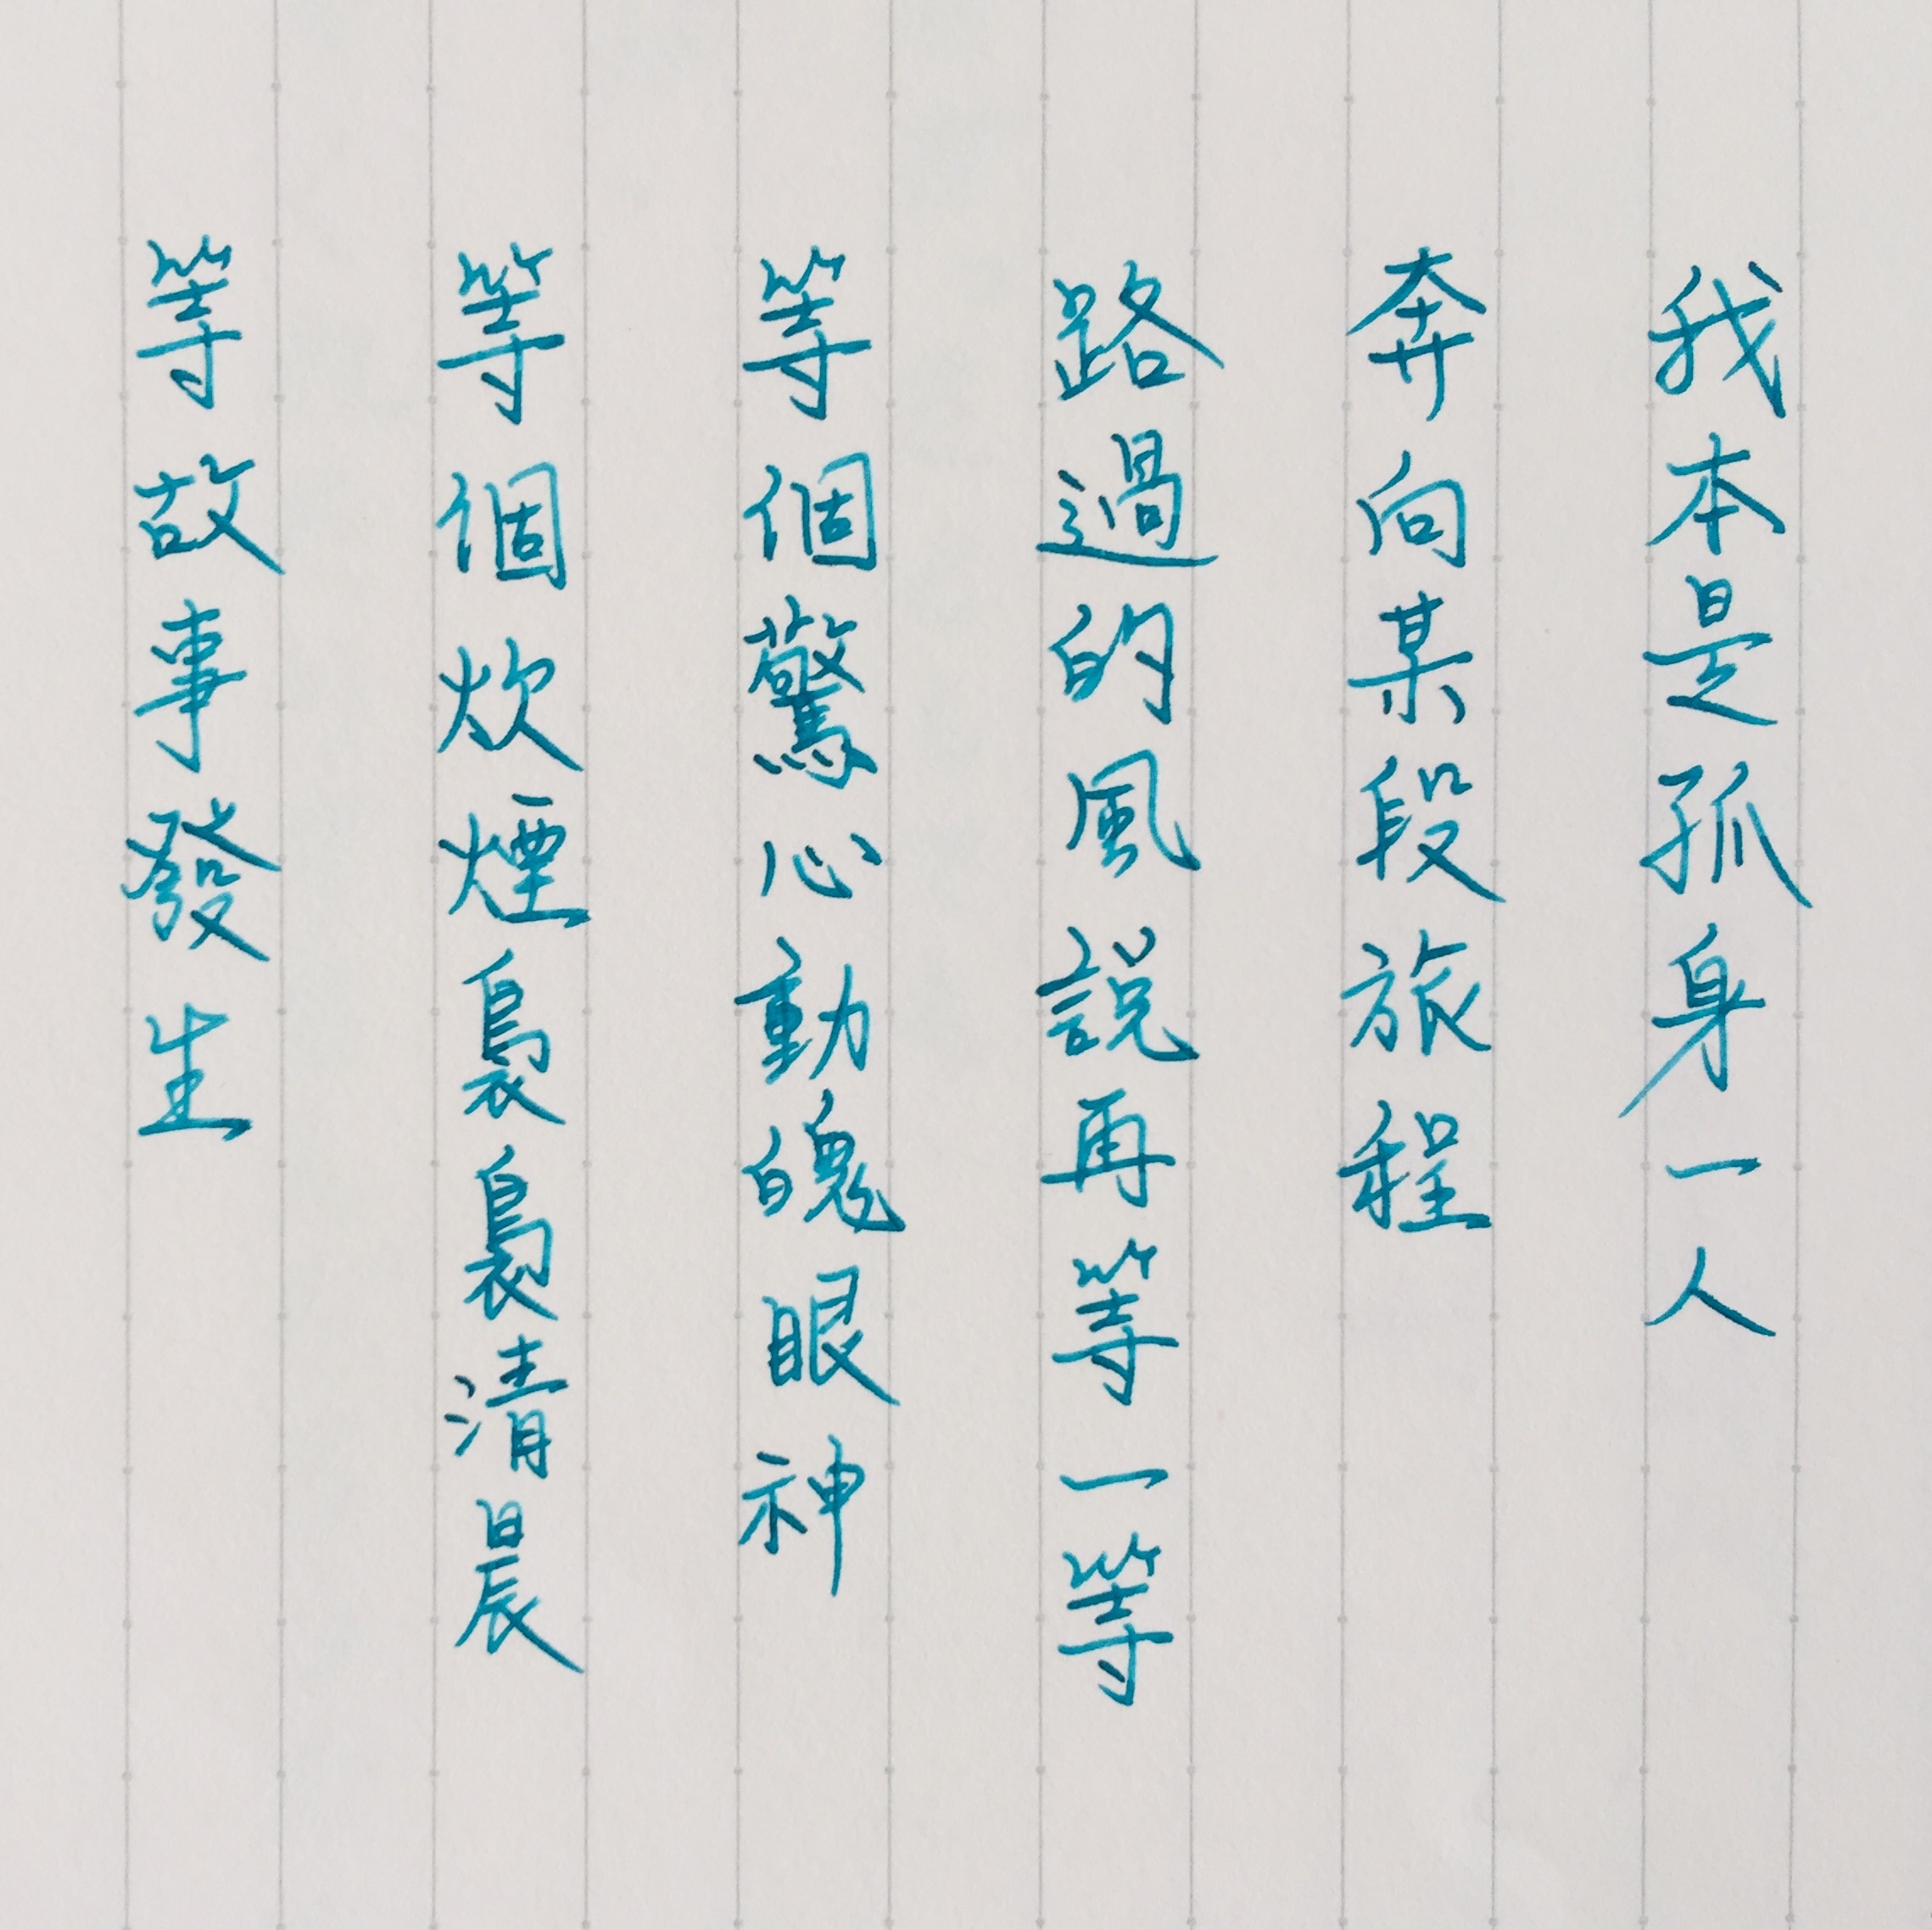 我本是孤身一人
奔向某段旅程
路過的風説再等一等
等個驚心動魄眼神
等個炊煙裊裊清晨
等故事發生